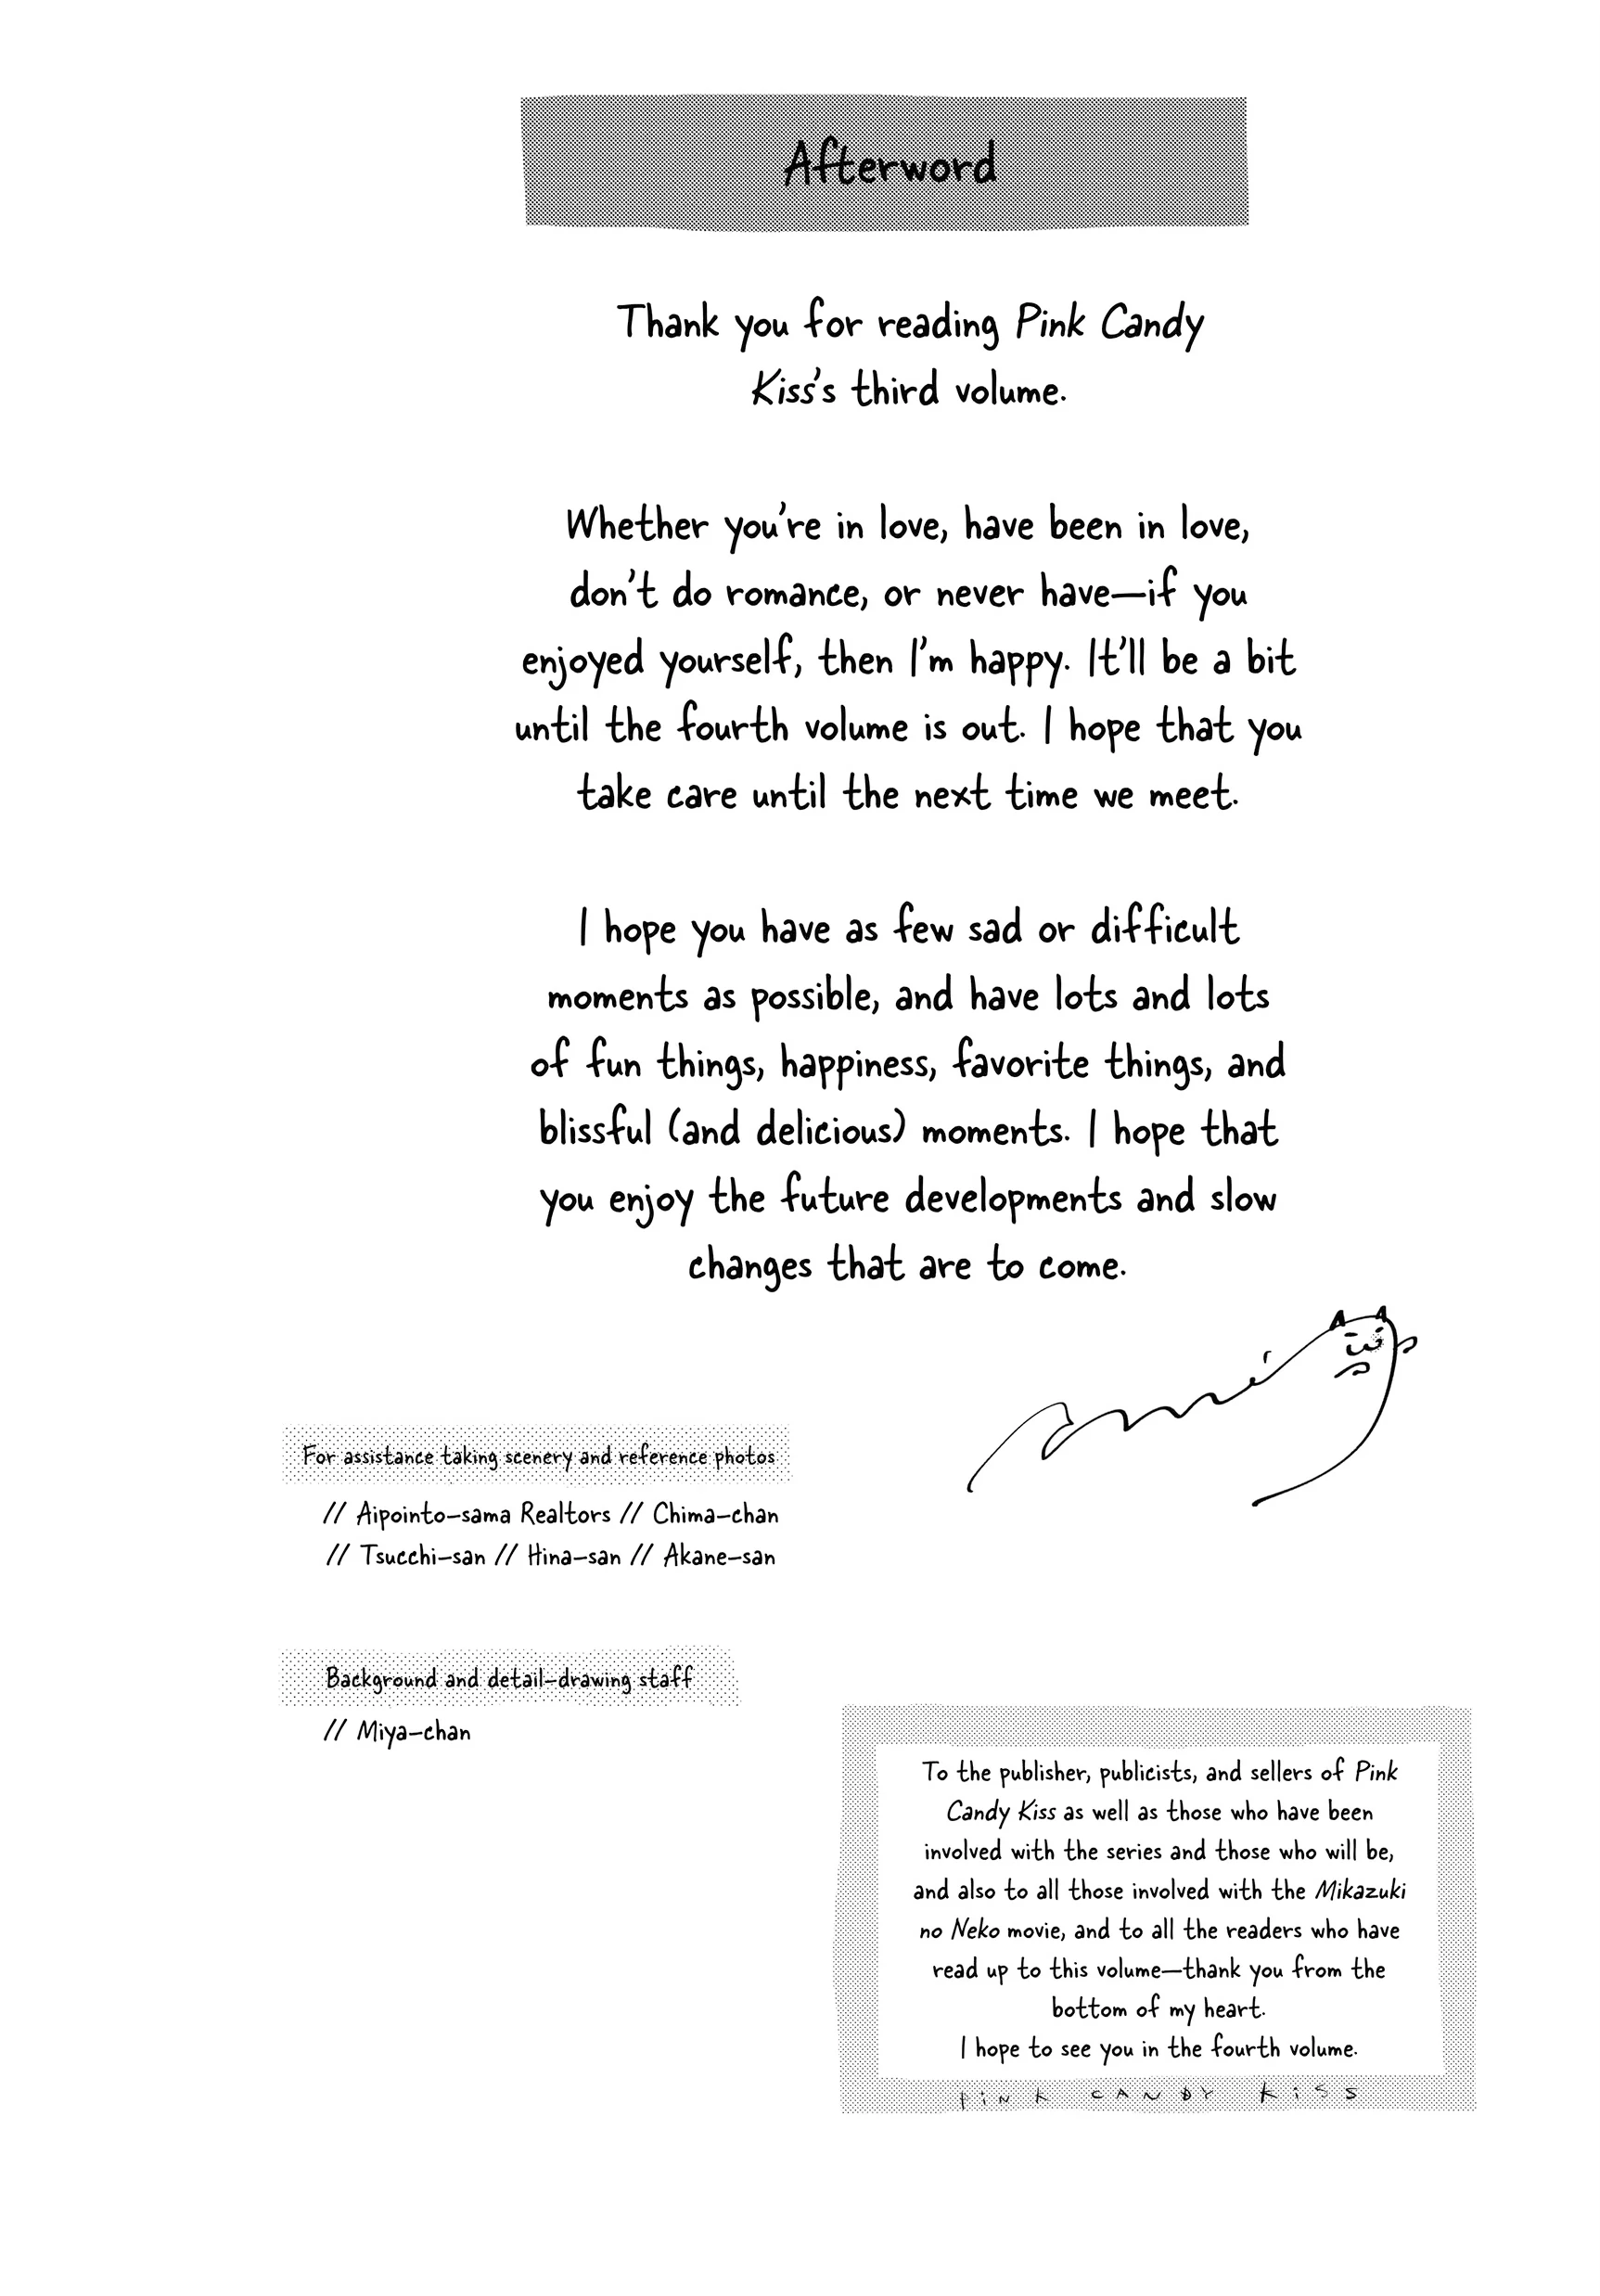 Afterword
Thank you for reading Pink Candy
Kiss's third volume.
Whether you're in love, have been in love,
don't do romance, or never have—if you
enjoyed yourself, then I'm happy. It'll be a bit
until the fourth volume is out. I hope that you
take care until the next time we meet.
I hope you have as few sad or difficult
moments as possible, and have lots and lots
of fun things, happiness, favorite things, and
blissful (and delicious) moments. I hope that
you enjoy the future developments and slow
changes that are to come.
Ami
For assistance taking scenery and reference photos
// Aipointo-sama Realtors // Chima-chan
// Tsucchi-san // Hina-san // Akane-san
Background and detail-drawing staff
// Miya-chan
To the publisher, publicists, and sellers of Pink
Candy Kiss as well as those who have been
involved with the series and those who will be,
and also to all those involved with the Mikazuki
no Neko movie, and to all the readers who have
read up to this volume—thank you from the
bottom of my heart.
I hope to see you in the fourth volume.
PiNK CANDY KiSS